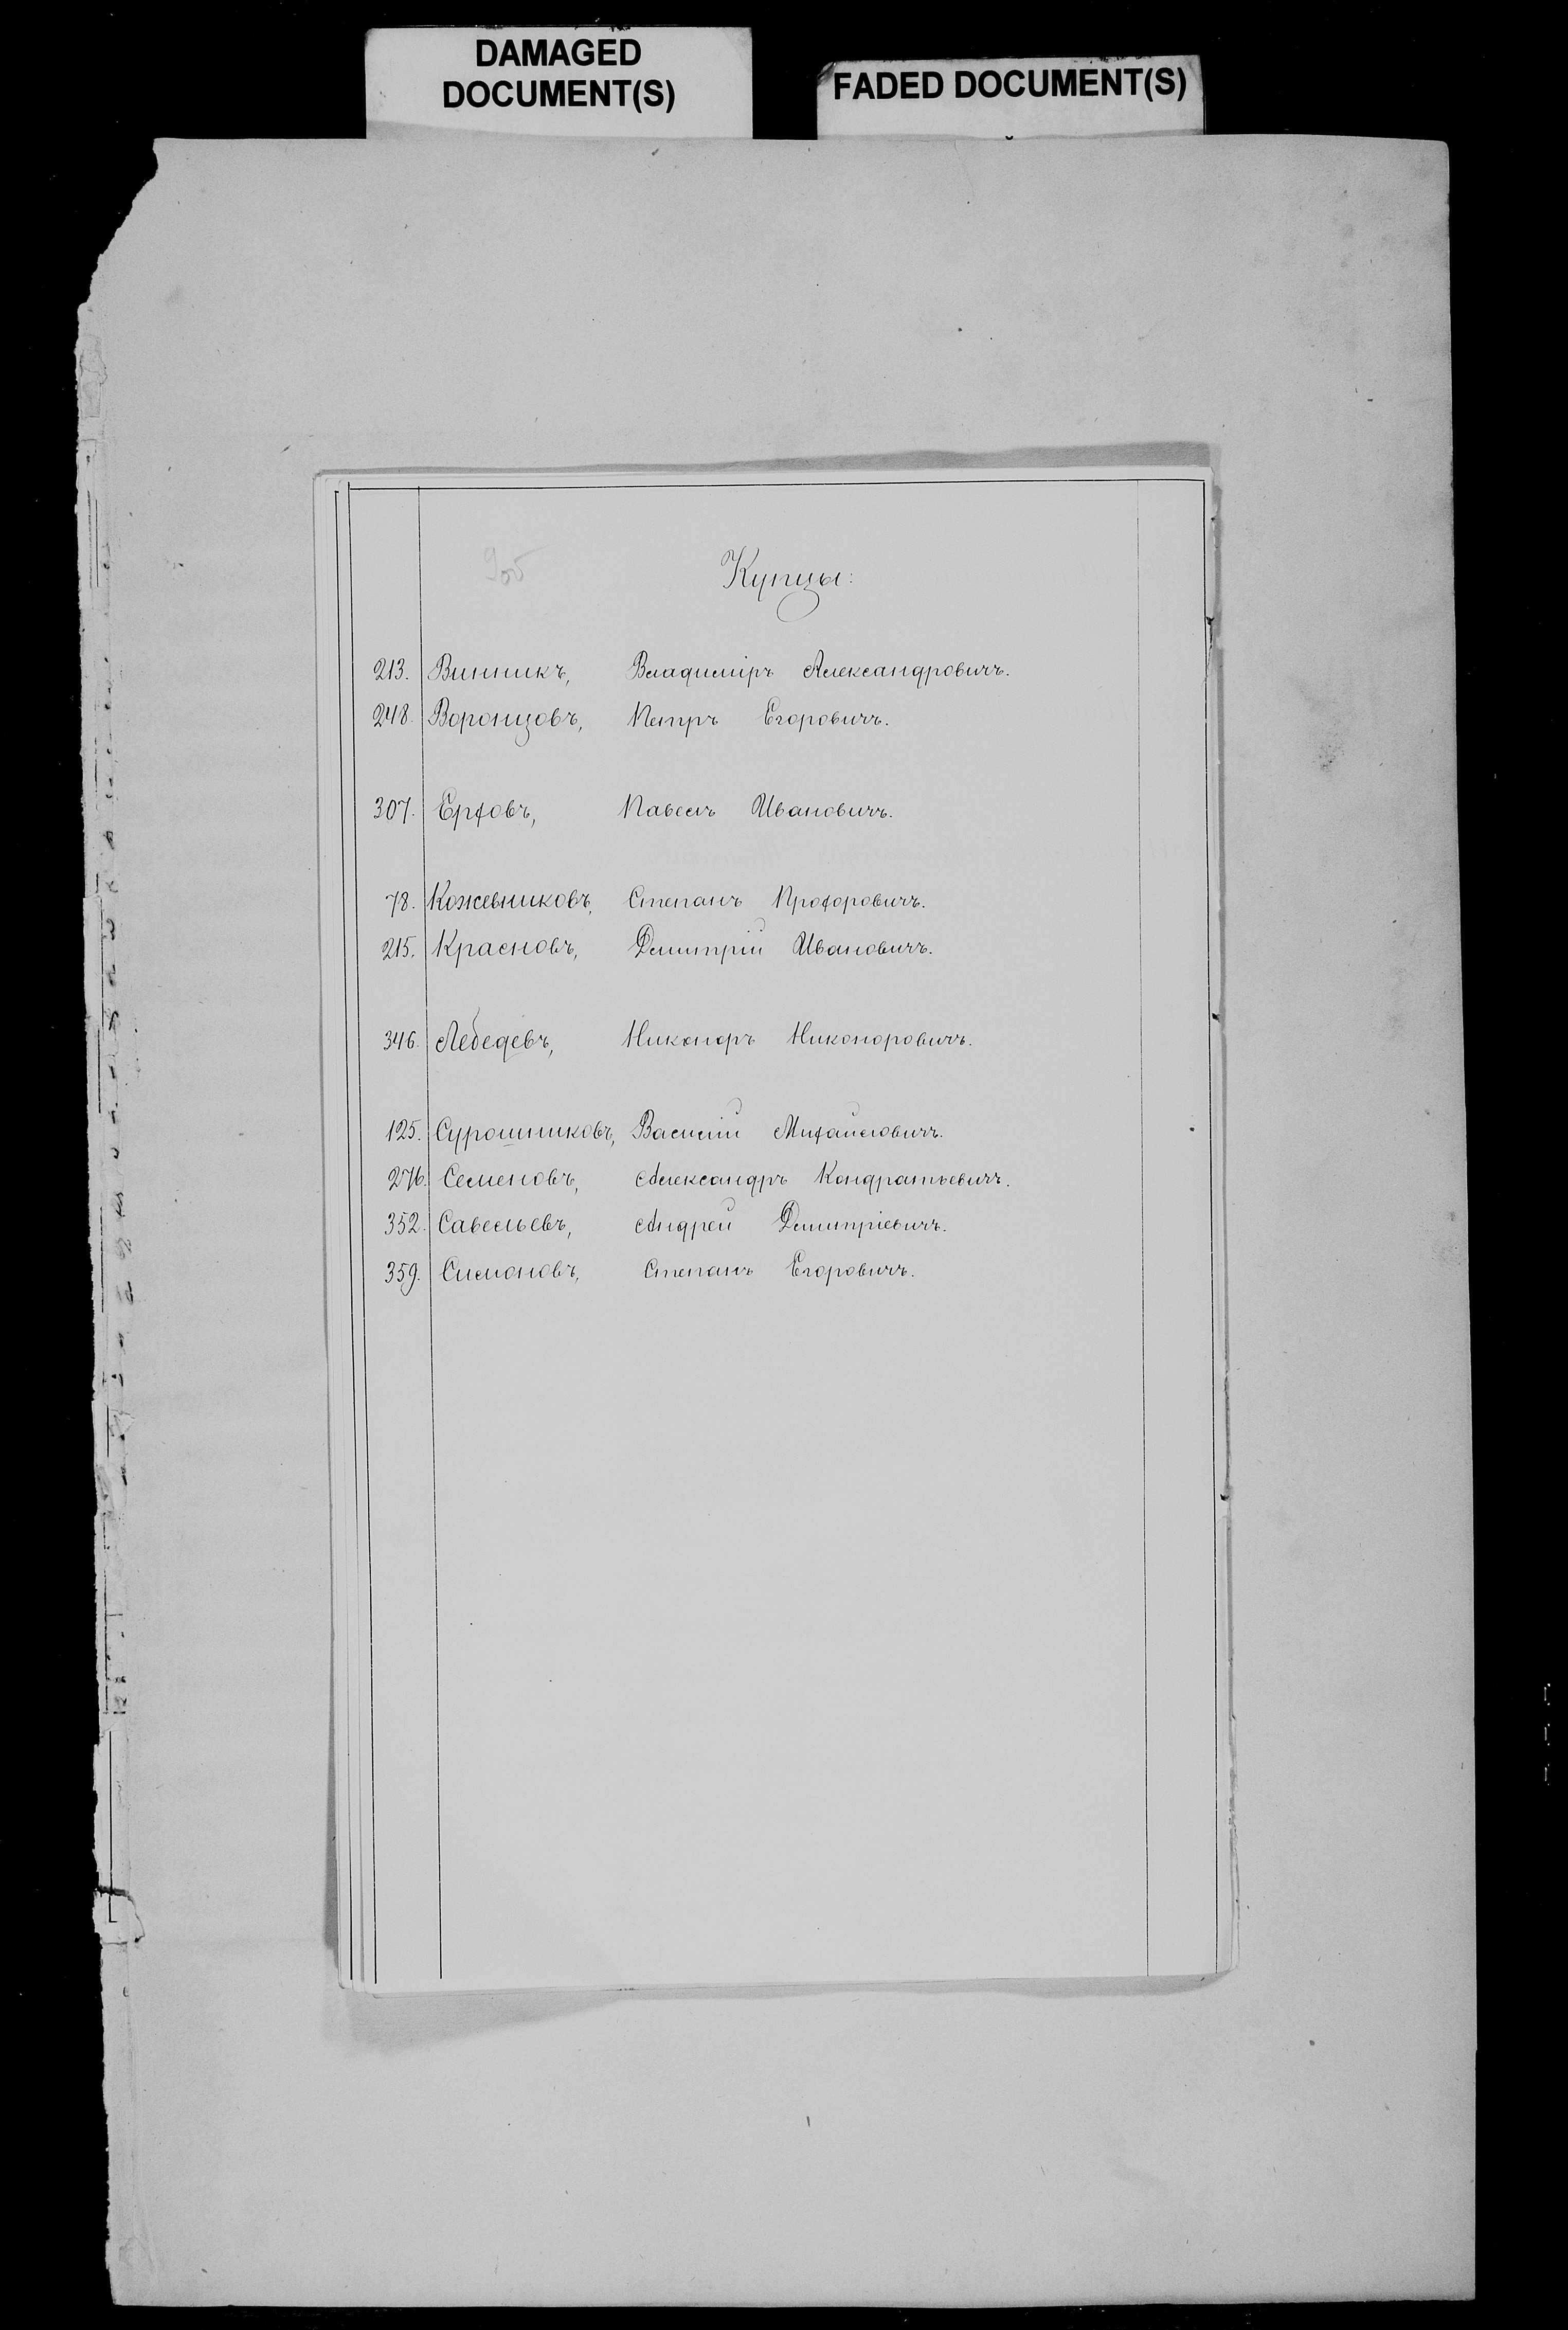 DAMAGED
DOCUMENT(S)
FADED DOCUMENT(S)
Купцы:
213. Винникъ, Владиміръ Александровичъ.
248. Воронцовъ, Петръ Егоровичъ.
307. Ерховъ, Павелъ Ивановичъ.
78. Кожевниковъ, Степанъ Прохоровичъ.
215. Красновъ, Димитрій Ивановичъ.
346. Лебедевъ, Никоноръ Никоноровичъ.
125. Сурошниковъ, Василій Михайловичъ.
276. Семеновъ, Александръ Кондратьевичъ.
352. Савельевъ, Андрей Димитріевичъ.
359. Симоновъ, Степанъ Егоровичъ.